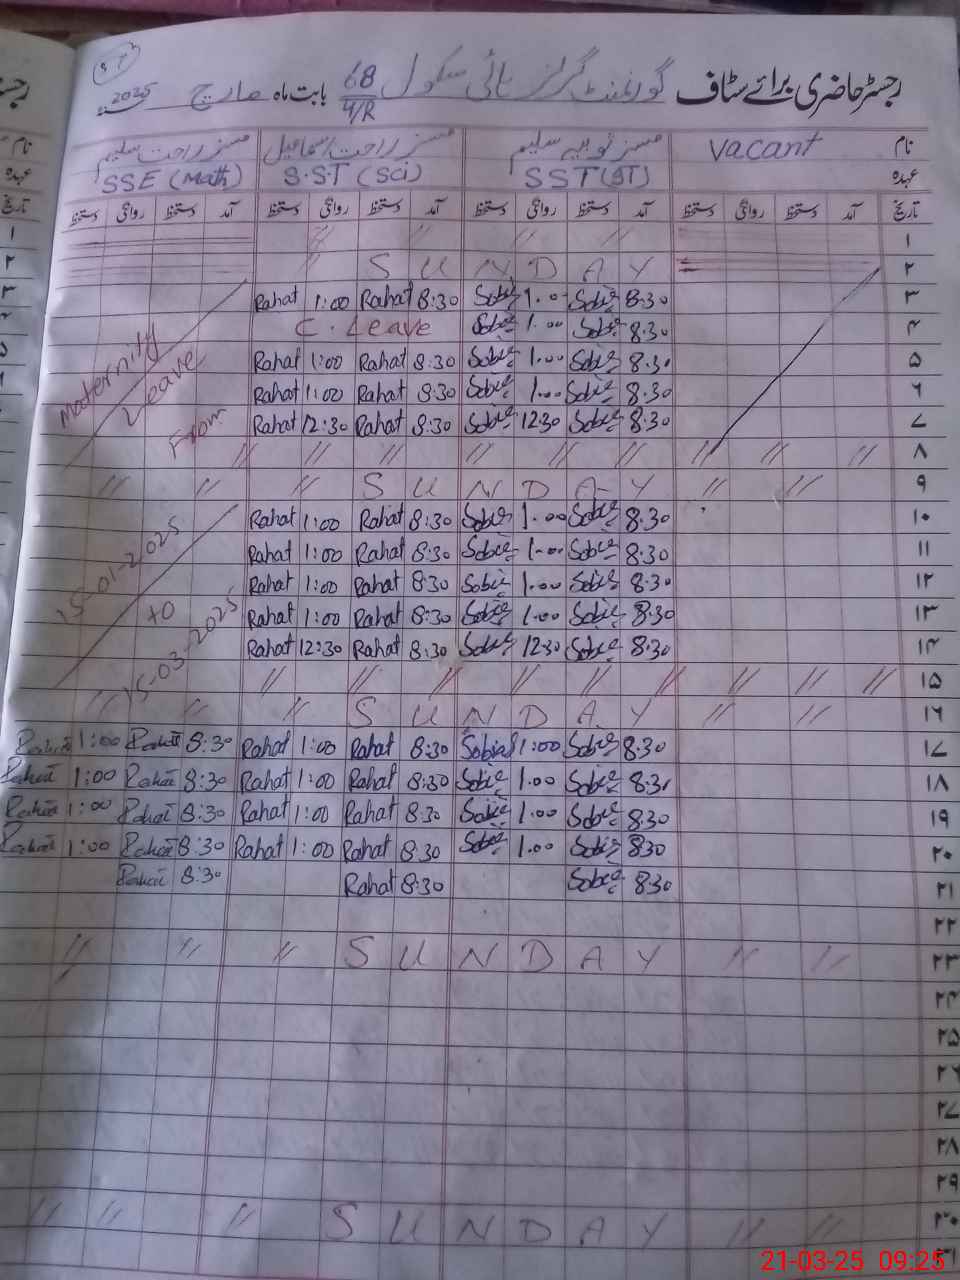 رجسٹر حاضری برائے سٹاف گورنمنٹ گرلز ہائی سکول 68 4/R بابت ماہ مارچ 2025
نام vacant مسز ثوبیہ سلیم مسز راحت اسماعیل مسز راحت سلیم
عہدہ SST (BT) S.ST (Sci) SSE (Math)
تاریخ آمد دستخط روانگی دستخط آمد دستخط روانگی دستخط آمد دستخط روانگی دستخط آمد دستخط روانگی دستخط
۱ // // // //
۲ // S U N D A Y
۳ Rahat 1:00 Rahat 8:30 Sobie 1.00 Sobie 8.30
۴ C. Leave Sobie 1.00 Sobie 8.30
۵ Rahat 1:00 Rahat 8:30 Sobie 1.00 Sobie 8.30
۶ Rahat 1:00 Rahat 8:30 Sobie 1.00 Sobie 8.30
۷ Rahat 12:30 Rahat 8:30 Sobie 12.30 Sobie 8.30
Maternity
Leave
From
۸ // // // // // // // // //
۹ // // // S U N D A Y // //
۱۰ Rahat 1:00 Rahat 8:30 Sobie 1.00 Sobie 8.30
۱۱ Rahat 1:00 Rahat 8:30 Sobie 1.00 Sobie 8.30
۱۲ Rahat 1:00 Rahat 8:30 Sobie 1.00 Sobie 8.30
۱۳ Rahat 1:00 Rahat 8:30 Sobie 1.00 Sobie 8.30
۱۴ Rahat 12:30 Rahat 8:30 Sobie 12.30 Sobie 8.30
15-01-2025
to
15-03-2025
۱۵ // // // // // // // // //
۱۶ // // // S U N D A Y // //
۱۷ Rahat 1:00 Rahat 8:30 Rahat 1:00 Rahat 8:30 Sobia 1:00 Sobie 8.30
۱۸ Rahat 1:00 Rahat 8:30 Rahat 1:00 Rahat 8:30 Sobie 1.00 Sobie 8.30
۱۹ Rahat 1:00 Rahat 8:30 Rahat 1:00 Rahat 8:30 Sobie 1.00 Sobie 8.30
۲۰ Rahat 1:00 Rahat 8:30 Rahat 1:00 Rahat 8:30 Sobie 1.00 Sobie 8.30
۲۱ Rahat 8:30 Rahat 8:30 Sobie 8.30
۲۲
۲۳ // // // S U N D A Y // //
۲۴
۲۵
۲۶
۲۷
۲۸
۲۹
۳۰ // // // S U N D A Y // //
۳۱
21-03-25 09:25